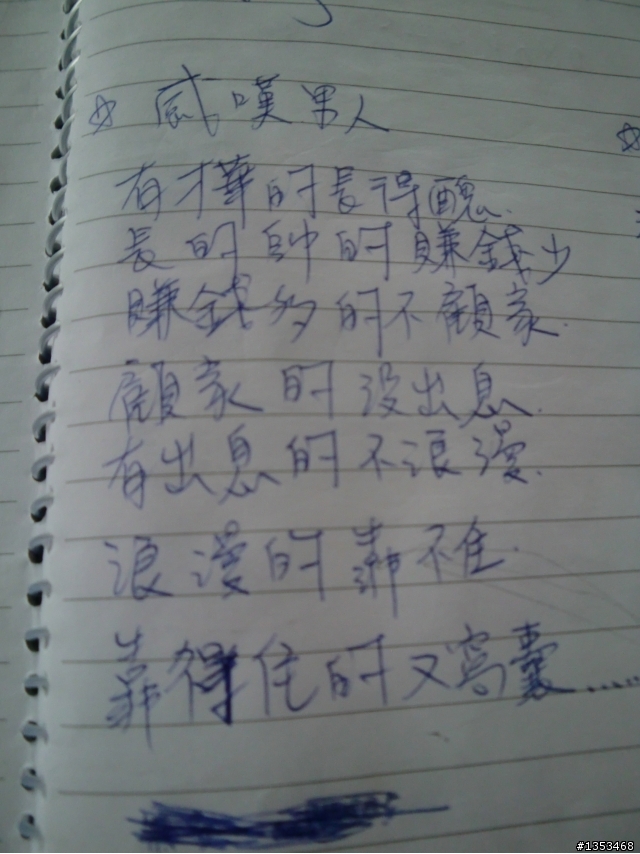 ☆ 感嘆男人
有才華的長得醜.
長的帥的賺錢少
賺錢多的不顧家.
顧家的沒出息.
有出息的不浪漫.
浪漫的靠不住.
靠得住的又窩囊.....
#1353468